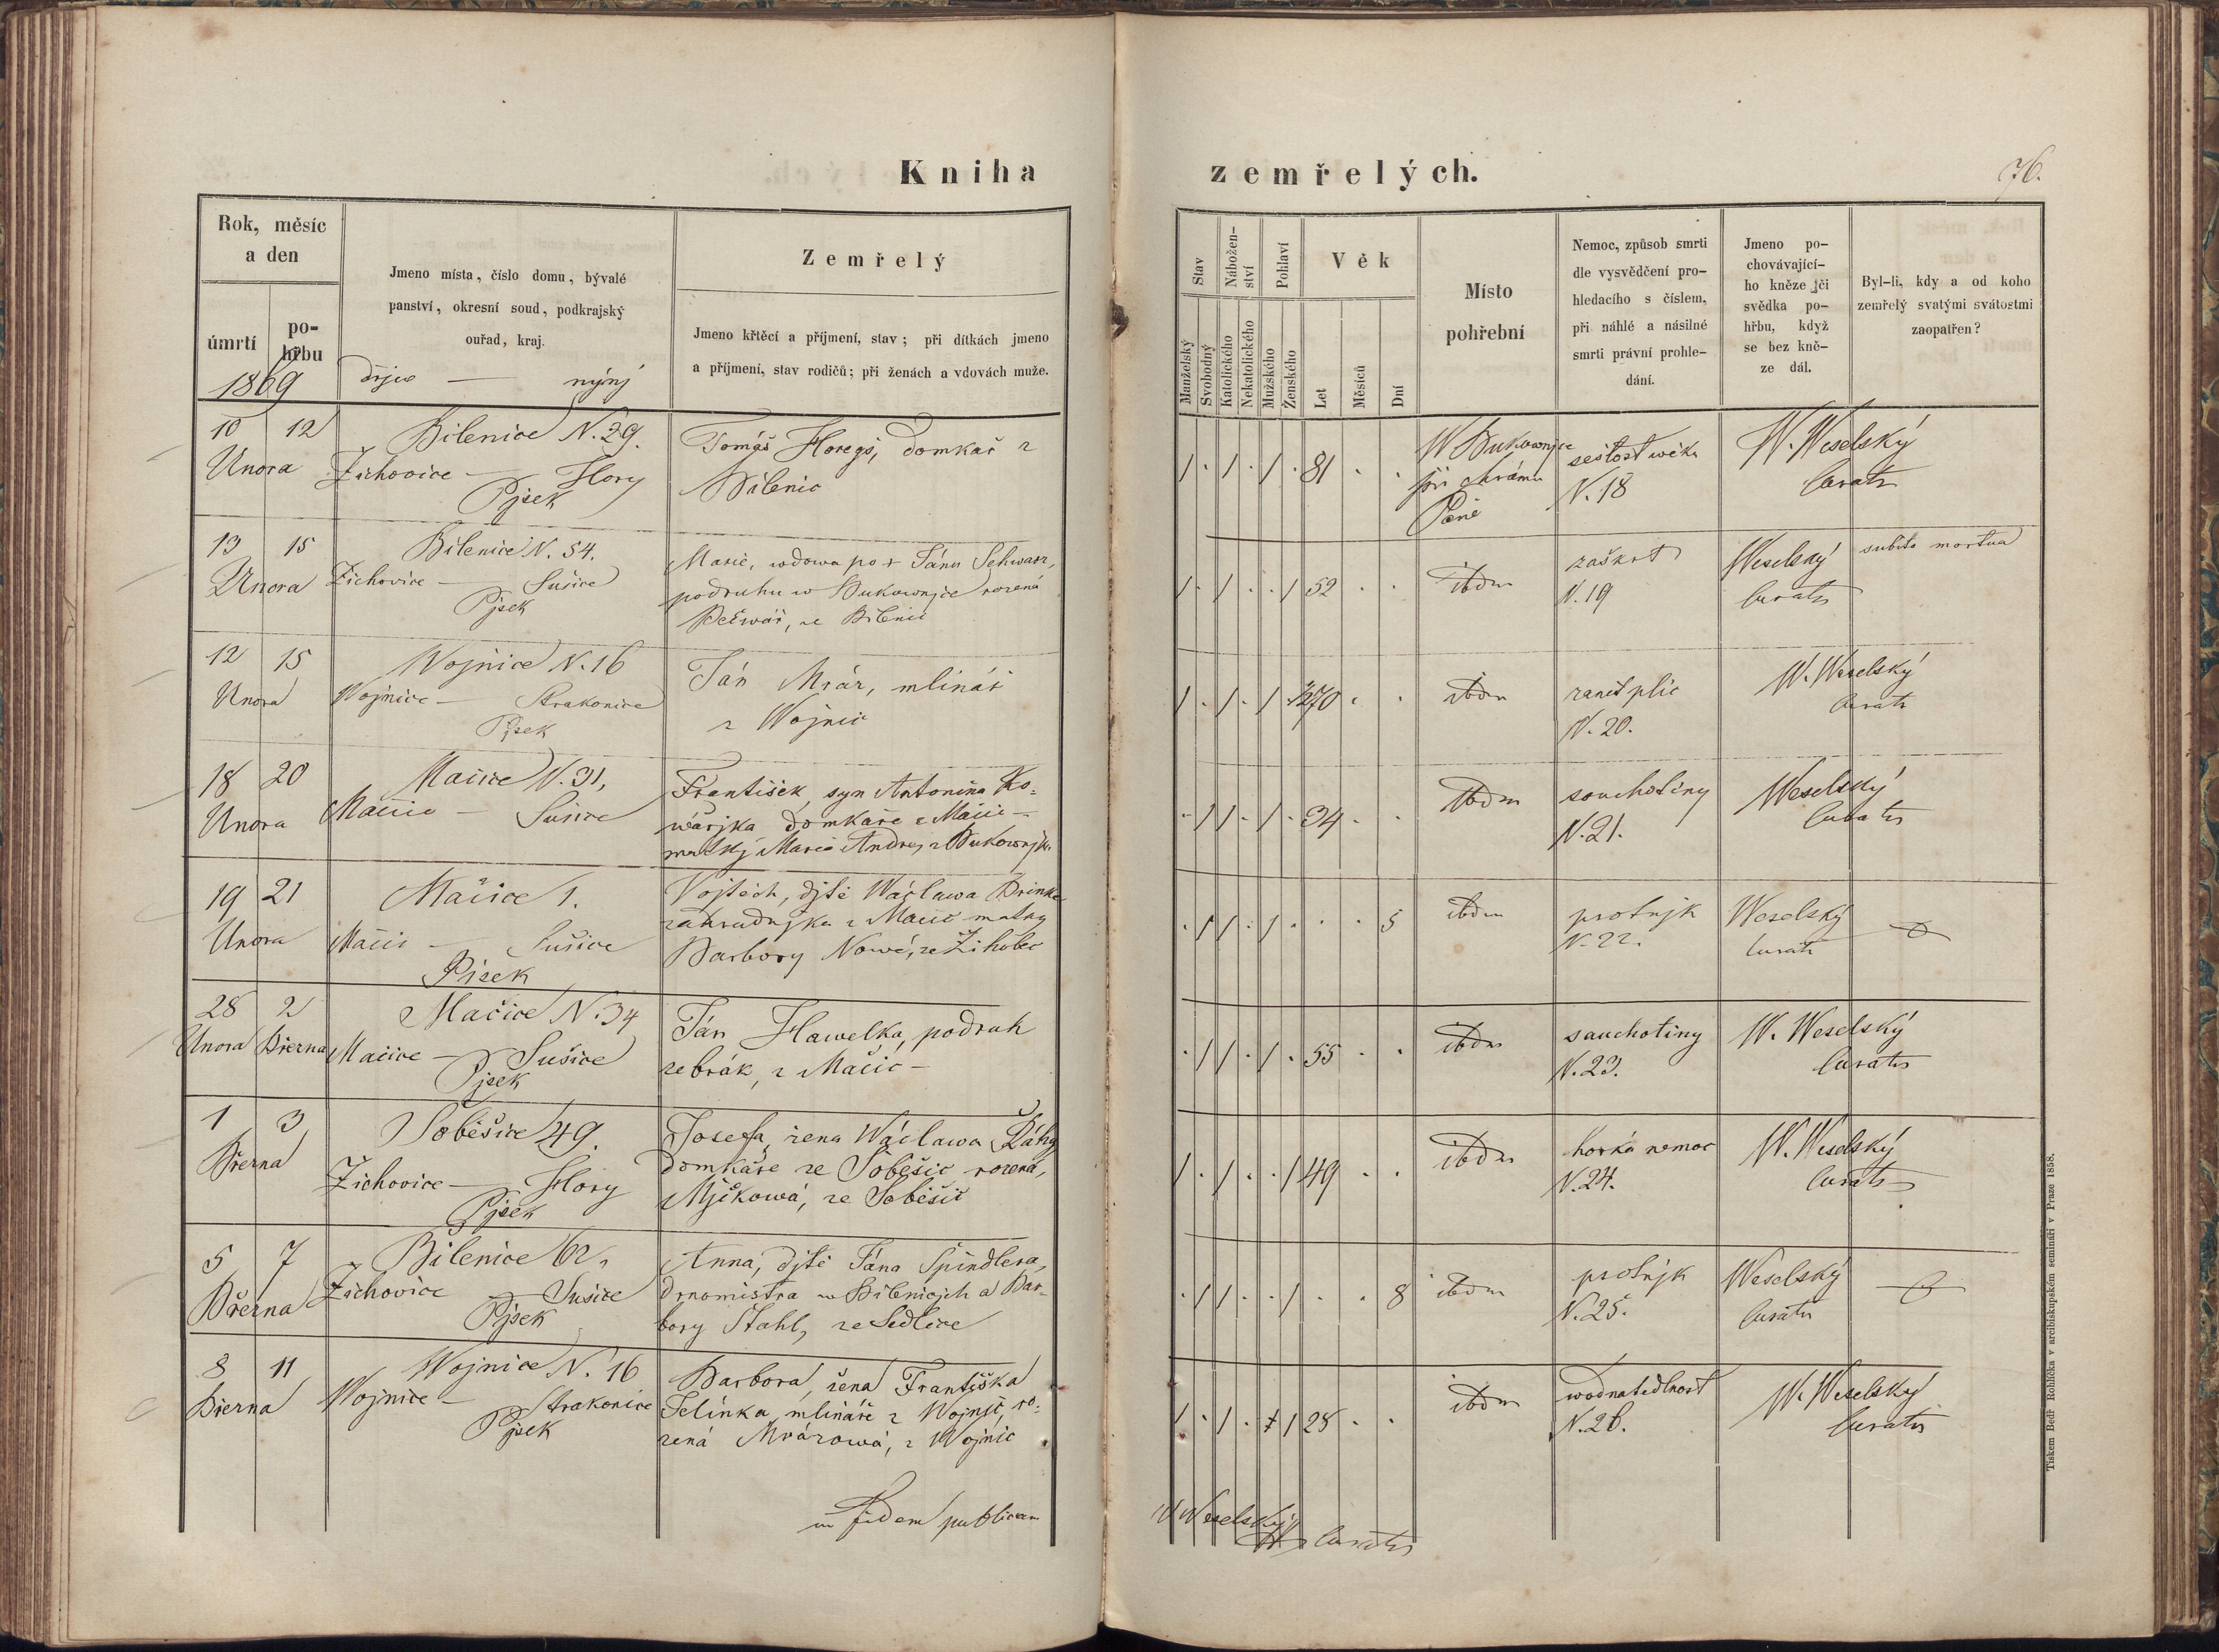 Kniha zemřelých.
76.
Rok, měsíc
a den
úmrtí
po-
hřbu
1869
Jmeno místa, číslo domu, bývalé
panství, okresní soud, podkrajský
ouřad, kraj.
nýnj
Zemřelý
Jmeno křtěcí a příjmení, stav; při dítkách jmeno
a příjmení, stav rodičů; při ženách a vdovách muže.
Stav
Nábožen-
ství
Pohlaví
Věk
Manželský
Svobodný
Katolického
Nekatolického
Mužského
Ženského
Let
Měsíců
Dní
Místo
pohřební
Nemoc, způsob smrti
dle vysvědčení pro-
hledacího s číslem,
při náhlé a násilné
smrti právní prohle-
dání.
Jmeno po-
chovávající-
ho kněze či
svědka po-
hřbu, když
se bez kně-
ze dál.
Byl-li, kdy a od koho
zemřelý svatými svátostmi
zaopatřen?
10 12
Unora
Bilenice N. 29.
Žichovice — Hory
Pjsek
Tomáš Horegš, domkař z
Bilenic
81
W Bukownjce
při chrámu
Páně
sešlost wěku
N. 18
W. Weselský
Curatus
13 15
Unora
Bilenice N. 54.
Žichovice — Sušice
Pjsek
Marie, wdowa po † Jánu Schwarz,
podruhu w Bukownjce rozená
ze Bilenic
52
ibdm
zaškrt
N. 19
Weselský
Curatus
subito mortua
12 15
Unora
Wojnice N. 16
Wojnice — Strakonice
Pjsek
Ján Mráz, mlinář
z Wojnic
70
ibdm
zanět plic
N. 20.
W. Weselský
Curatus
18 20
Unora
Mačice N. 31,
Mačice — Sušice
František, syn Antonína Ko-
wářjka domkáře z Mačic —
matky Marie Andrej z Bukownjka
34
ibdm
souchotiny
N. 21.
Weselský
Curatus
19 21
Unora
Mačice 1.
Mačic — Sušice
Pisek
Vojtěch, djtě Wáclawa Brinka
zahradnjka z Mačic matky
Barbory Nowé, ze Žihobec
5
ibdm
psotnjk
N. 22.
Weselský
Curatus
28 2
Unora Března
Mačice N. 34
Mačice — Sušice
Pjsek
Ján Hawelka, podruh
žebrák, z Mačic —
55
ibdm
sauchotiny
N. 23.
W. Weselský
Curatus
1 3
Března
Soběšice 49.
Žichovice — Hory
Pjsek
Josefa, žena Wáclawa
domkáře ze Soběšic rozená,
Mjčkowá, ze Soběšic
49
ibdm
horká nemoc
N. 24.
W. Weselský
Curatus
5 7
Března
Bilenice 62,
Žichovice — Sušice
Pjsek
Anna, djtě Jána Špindlera,
drnomistra w Bilenicjch a Bar-
bory Stahl, ze Sedlice
8
ibdm
psotnjk
N. 25.
Weselský
Curatus
8 11
Března
Wojnice N. 16
Wojnice — Strakonice
Pjsek
Barbora, žena Františka
Jelínka, mlináře z Wojnic, ro-
zená Mrázowá, z Wojnic
28
ibdm
wodnatedlnost
N. 26.
W. Weselský
Curatus
in fidem publicam
W Weselský Curatus
Tiskem Bedř. Rohlíčka v arcibiskupském semináři v Praze 1858.